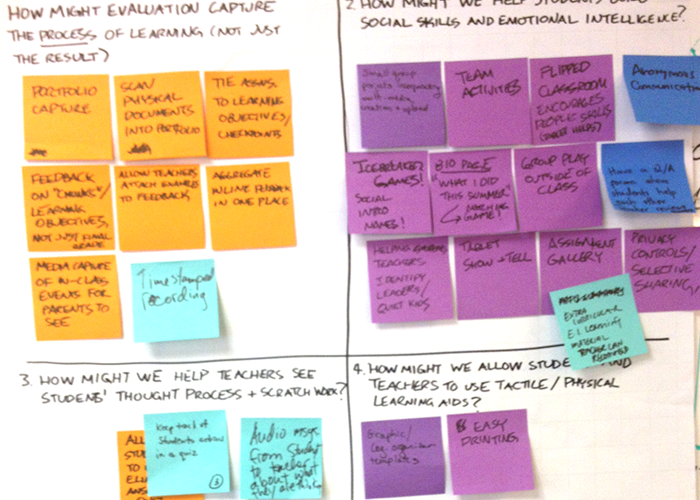 HOW MIGHT EVALUATION CAPTURE
THE PROCESS OF LEARNING (NOT JUST
THE RESULT)
PORTFOLIO
CAPTURE
SCAN
PHYSICAL
DOCUMENTS
INTO PORTFOLIO
TIE ASSNS.
TO LEARNING
OBJECTIVES/
CHECKPOINTS
FEEDBACK
ON "CHUNKS"/
LEARNING
OBJECTIVES,
NOT JUST FINAL
GRADE
ALLOW TEACHERS
ATTACH
TO FEEDBACK
AGGREGATE
INLINE FEEDBACK
IN ONE PLACE
MEDIA CAPTURE
OF IN-CLASS
EVENTS FOR
PARENTS TO
SEE
Time Stamped
recording
2. HOW MIGHT WE HELP STUDENTS BUILD
SOCIAL SKILLS AND EMOTIONAL INTELLIGENCE?
Small group
projects incorporating
multi-media
creation + upload
TEAM
ACTIVITIES
FLIPPED
CLASSROOM
ENCOURAGES
PEOPLE SKILLS
Anonymous
Communication
ICEBREAKER
GAMES!
SOCIAL
INTRO
NAMES!
BIO PAGE
"WHAT I DID
THIS SUMMER"
MATCHING
GAME!
GROUP PLAY
OUTSIDE OF
CLASS
Have a Q/A
forum where
students help
each other
HELPING
TEACHERS
IDENTIFY
LEADERS/
QUIET KIDS
TABLET
SHOW + TELL
ASSIGNMENT
GALLERY
PRIVACY
CONTROLS/
SELECTIVE
SHARING
EXTRA
CURRICULAR
E.I. LEARNING
MATERIAL
TEACHER CAN
RECOMMEND
3. HOW MIGHT WE HELP TEACHERS SEE
STUDENTS' THOUGHT PROCESS + SCRATCH WORK?
Keep track of
Students action
in a quiz
3
Audio msgs
from Student
to teacher
about what
4. HOW MIGHT WE ALLOW STUDENTS AND
TEACHERS TO USE TACTILE/PHYSICAL
LEARNING AIDS?
Graphic/
organizer
templates
EASY
PRINTING